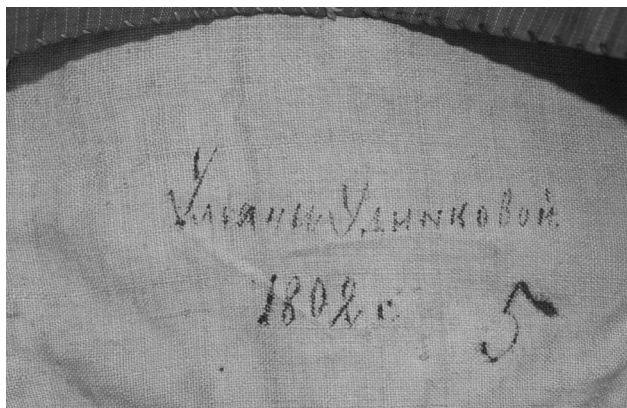 Ульяны Удинковой
1802 г. 5